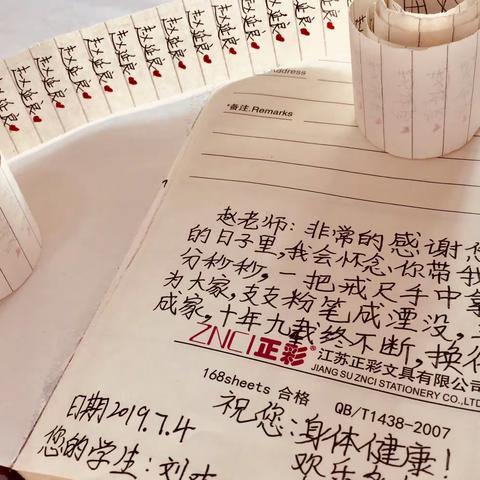 赵延良 赵延良 赵延良 赵延良 赵延良 赵延良 赵延良
Address
*备注.Remarks
赵老师:非常的感谢您
的日子里,我会怀念你带我
分秒秒,一把戒尺手中拿
为大家,支支粉笔成湮没,
成家,十年九载终不断,换得
ZNCI正彩®
江苏正彩文具有限公司
JIANG SU ZNCI STATIONERY CO.,LTD
168sheets 合格 QB/T1438-2007
祝您:身体健康!
日期2019.7.4
欢乐
您的学生:刘